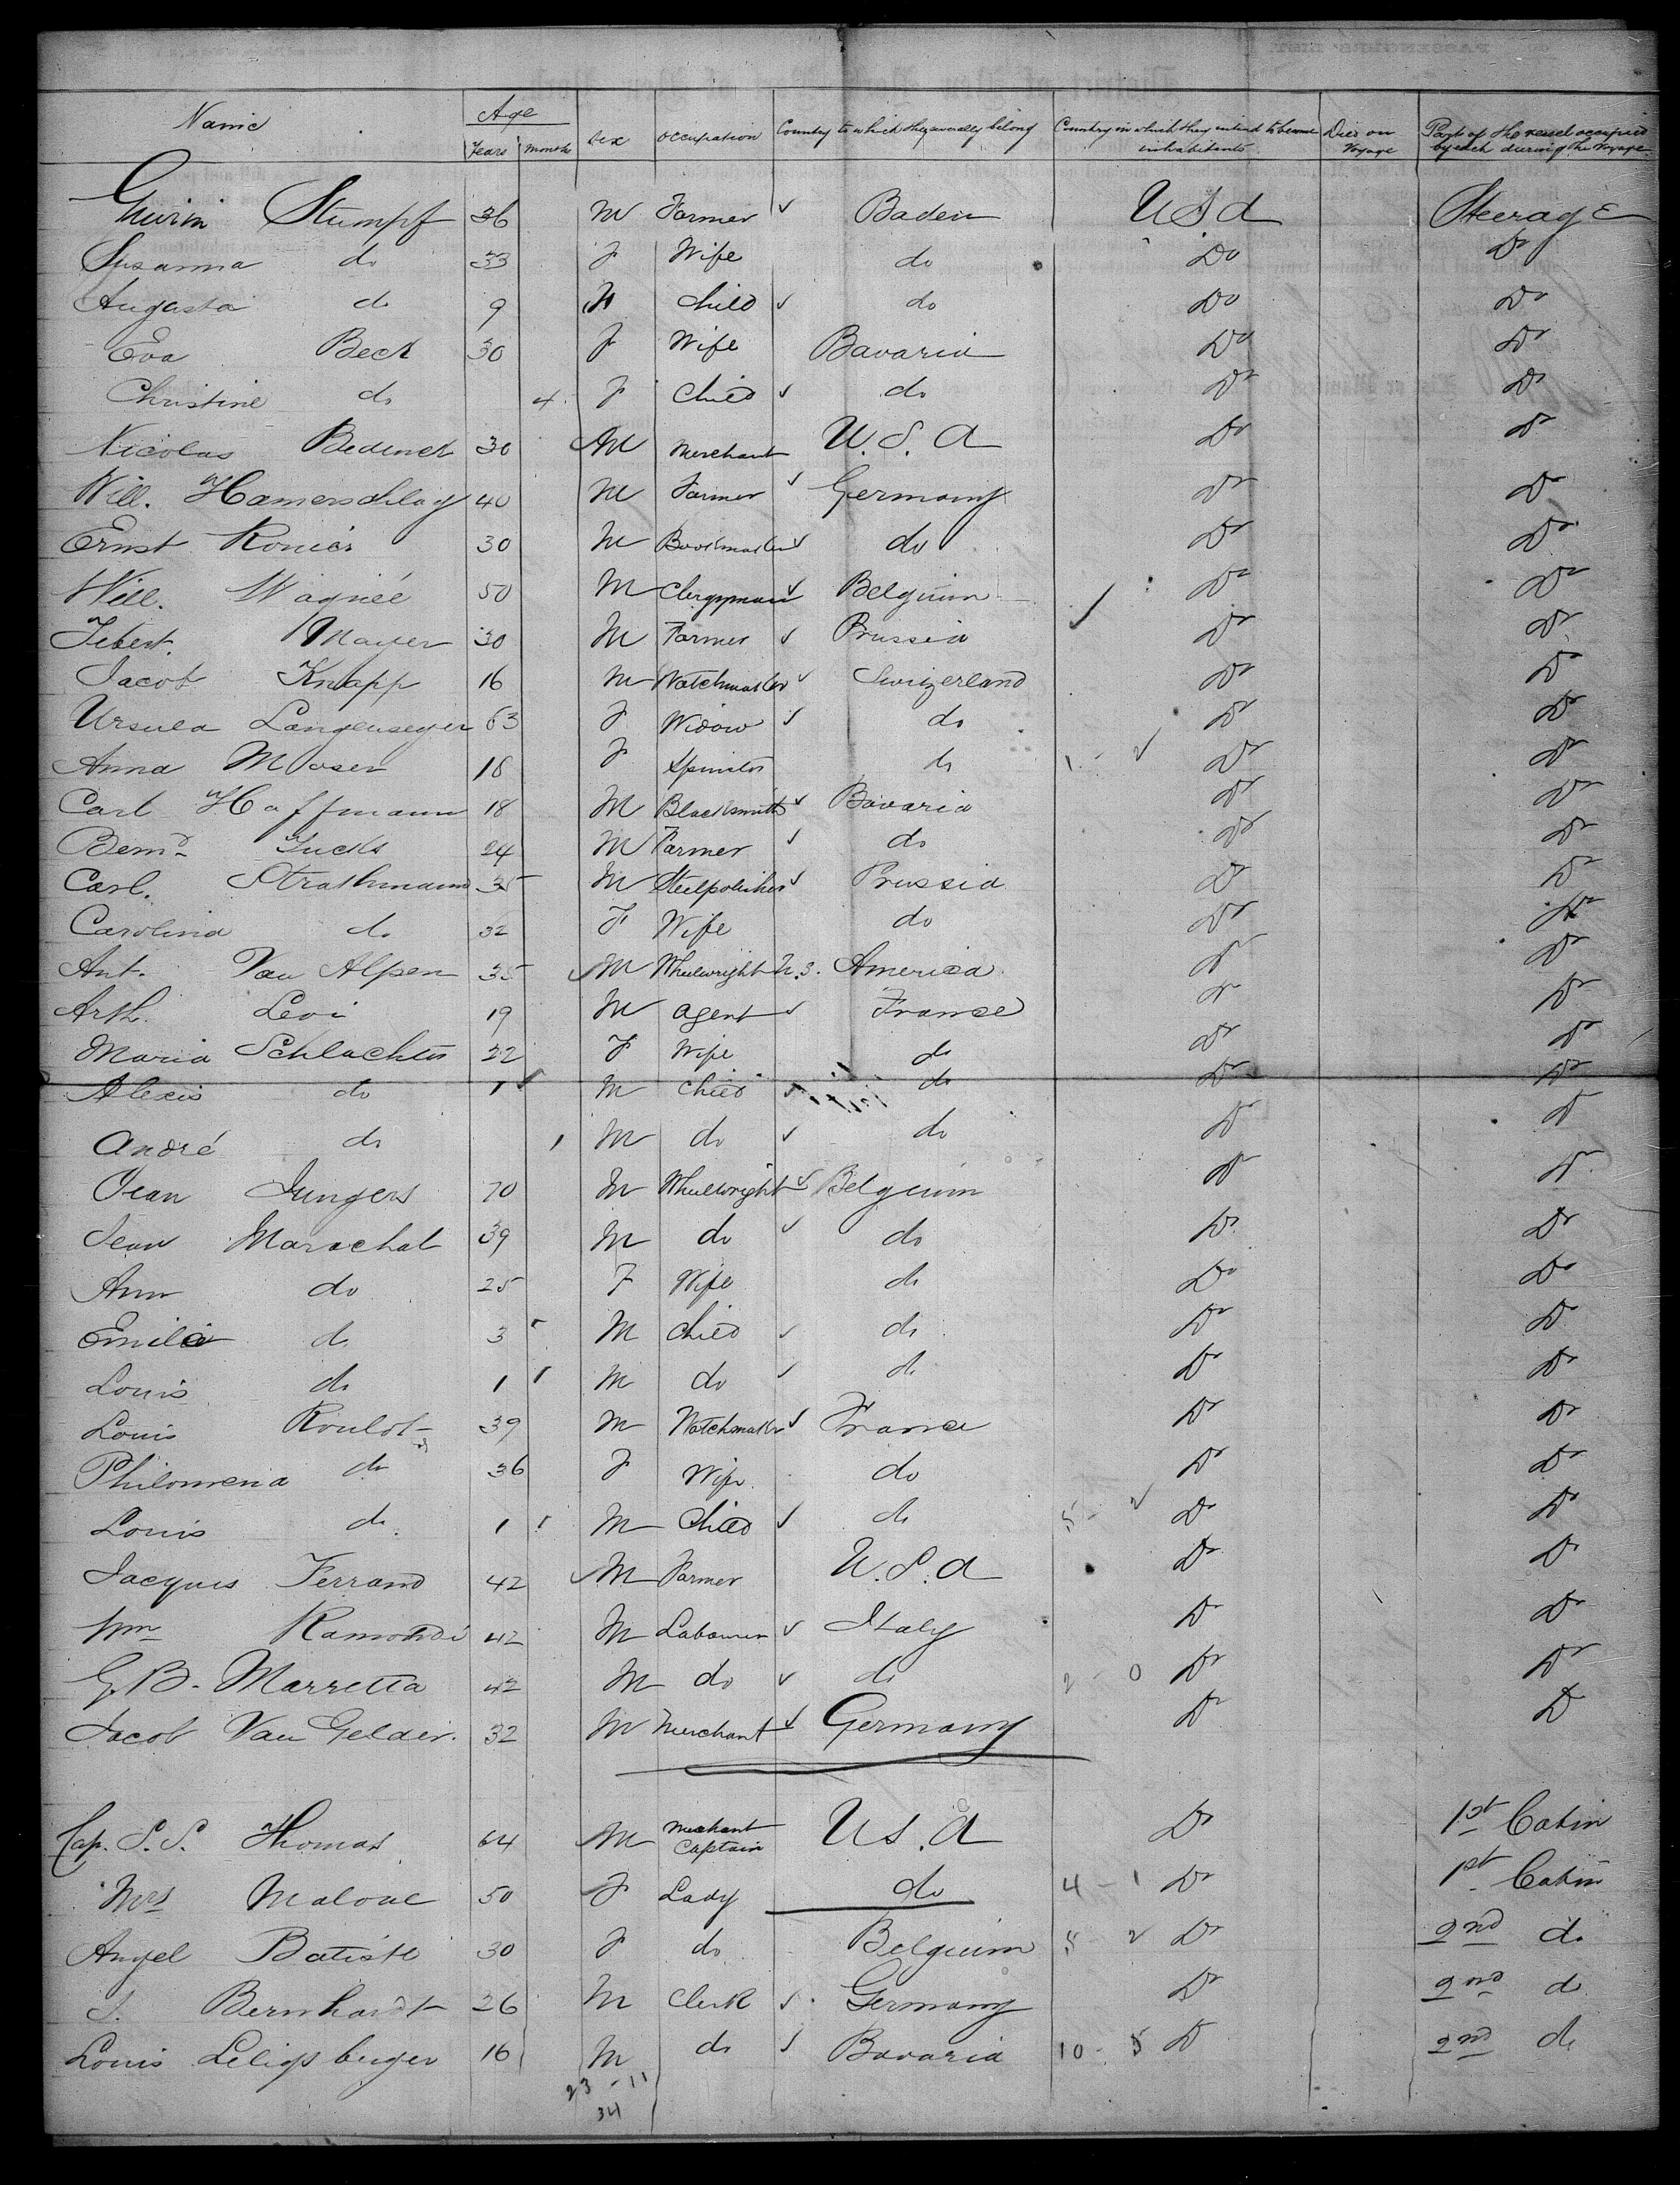 Name Age Years Months Sex Occupation Country to which they severally belong Country in which they intend to become inhabitants Died on Voyage Part of the vessel occupied by each during the voyage
Stumpf 36 M Farmer Baden U S A Steerage
Susanna do 33 F Wife do Do Do
Augusta do 9 Child do Do Do
Eva Beck 30 F Wife Bavaria Do Do
Christine do 4 F Child do Do Do
Nicolas 30 M Merchant U.S.A Do Do
Will. Hamerschlag 40 M Farmer Germany Do Do
Ernst 30 M do Do Do
Will. 50 M Clergyman Belguim Do Do
Mayer 30 M Farmer Prussia Do Do
Jacob Knapp 16 M Watchmaker Swizerland Do Do
Ursula 63 F Widow do Do Do
Anna Moser 18 F Spinster do 1 - 2 Do Do
Carl Hoffmann 18 M Blacksmith Bavaria Do Do
Bernd 24 M Farmer do Do Do
Carl. Strathmann 35 M Steelpolisher Prussia Do Do
Carolina do 32 F Wife do Do Do
Ant. Van Alpen 35 M Wheelwright U.S. America Do Do
Arth. Levi 19 M agent France Do Do
Maria Schlachter 22 F Wife do Do Do
Alexis do 1 M Child do Do Do
André do 1 M do do Do Do
Jean Jungers 70 M Wheelwright Belguim Do Do
Jean Marachal 39 M do do Do Do
Ann do 25 F Wife do Do Do
Emile do 3 M Child do Do Do
Louis do 1 M do do Do Do
Louis Roulot 39 M Watchmaker France Do Do
Philomena do 36 F Wife do Do Do
Louis do 1 M Child do 5 - 2 Do Do
Jacques Ferrand 42 M Farmer U.S.A Do Do
Wm Ramondi 42 M Labourer Italy Do Do
G.B. Marretta 42 M do do 2 - 0 Do Do
Jacob Van Gelder. 32 M Merchant Germany Do Do
Cap. S.S. Thomas 64 M Merchant Captain U S. A Do 1st Cabin
Mrs Malone 50 F Lady do 4 - 1 Do 1st Cabin
Angel Batiste 30 F do Belguim 5 2 Do 2nd do
S. Bernhardt 26 M Clerk Germany Do 2nd do
Louis 16 M do Bavaria 10 - 5 Do 2nd do
23 - 11
34